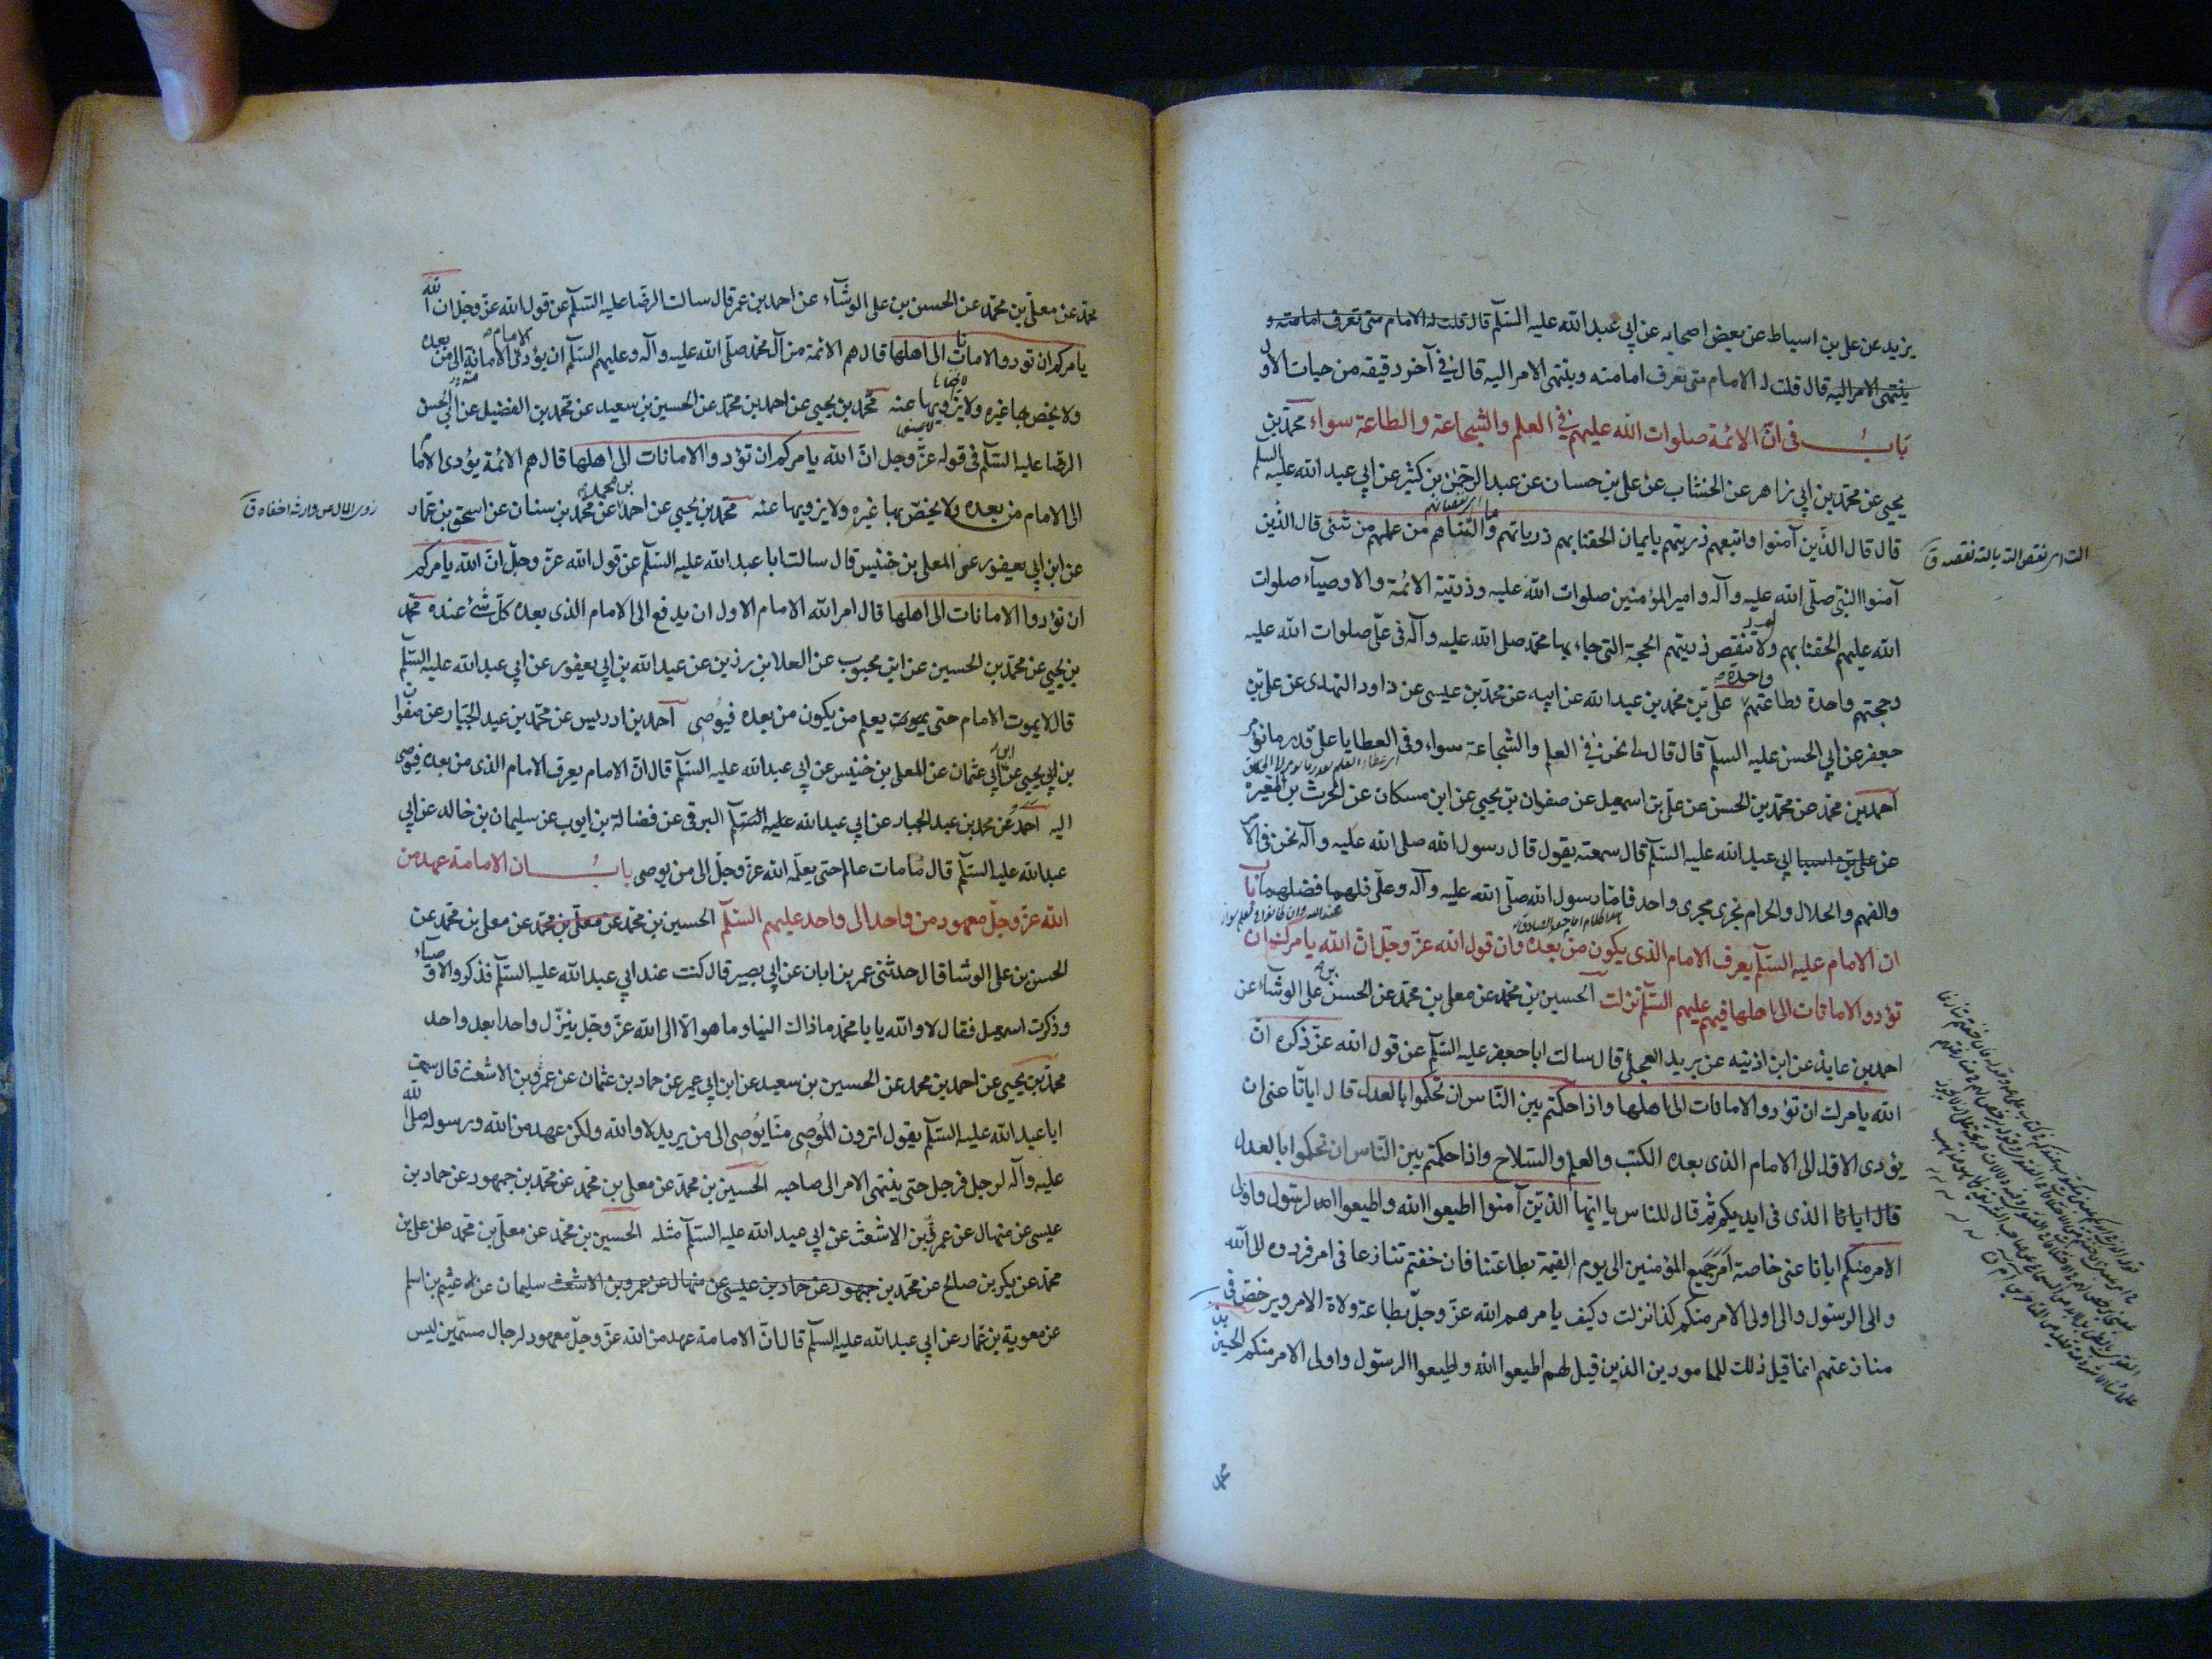 يزيد عن علي بن اسباط عن بعض اصحابه عن ابي عبد الله عليه السلم قال قلت له الامام متى تعرف امامته و
ينتهى الامر اليه قال قلت له الامام متى يعرف امامته وينتهى الامر اليه قال في آخر دقيقه من حيات الاول
باب في ان الائمة صلوات الله عليهم في العلم والشجاعة والطاعة سواء محمد بن
يحيى عن محمد بن ابي زاهر عن الخشاب عن علي بن حسان عن عبد الرحمن بن كثير عن ابي عبد الله عليه السلم
قال قال الذين آمنوا واتبعهم ذريتهم بايمان الحقنا بهم ذرياتهم وما التناهم من عملهم من شئ قال الذين
آمنوا النبي صلى الله عليه وآله وامير المؤمنين صلوات الله عليه وذريته الائمة والاوصياء صلوات
الله عليهم الحقنا بهم ولا ننقص ذريتهم الحجة التي جاء بها محمد صلى الله عليه وآله في علي صلوات الله عليه
وحجتهم واحدة وطاعتهم واحدة علي بن محمد بن عبد الله عن ابيه عن محمد بن عيسى عن داود النهدى عن علي بن
جعفر عن ابي الحسن عليه السلم قال قال لي نحن في العلم والشجاعة سواء وفي العطايا على قدر ما نؤمر
احمد بن محمد عن محمد بن الحسن عن علي بن اسمعيل عن صفوان بن يحيى عن ابن مسكان عن الحرث بن المغيرة
عن علي بن اسبا ابي عبد الله عليه السلم قال سمعته يقول قال رسول الله صلى الله عليه وآله نحن في الامر
والفهم والحلال والحرام نجرى مجرى واحد فاما رسول الله صلى الله عليه وآله وعلي فلهما فضلهما باب
ان الامام عليه السلم يعرف الامام الذي يكون من بعده وان قول الله عز وجل ان الله يامركم ان
تؤدوا الامانات الى اهلها فيهم عليهم السلم نزلت الحسين بن محمد عن معلى بن محمد عن الحسن بن علي الوشاء عن
احمد بن عايذ عن ابن اذينه عن بريد العجلي قال سالت ابا جعفر عليه السلم عن قول الله عز ذكره ان
الله يامرك ان تؤدوا الامانات الى اهلها واذا حكمتم بين الناس ان تحكموا بالعدل قال ايانا عنى ان
يؤدى الاول الى الامام الذي بعده الكتب والعلم والسلاح واذا حكمتم بين الناس ان تحكموا بالعدل
قال ايانا الذي في ايديكم ثم قال للناس يا ايها الذين آمنوا اطيعوا الله واطيعوا الرسول واولى
الامر منكم ايانا عنى خاصة امر جميع المؤمنين الى يوم القيمة بطاعتنا فان خفتم تنازعا في امر فردوه الى الله
والى الرسول والى اولى الامر منكم كذا نزلت وكيف يامرهم الله عز وجل بطاعة ولاة الامر ويرخص في
منازعتهم انما قيل ذلك للمامورين الذين قيل لهم اطيعوا الله واطيعوا الرسول واولى الامر منكم الحسين بن
محمد عن معلى بن محمد عن الحسن بن علي الوشاء عن احمد بن عمر قال سالت الرضا عليه السلم عن قول الله عز وجل ان الله
يامركم ان تودوا الامانات الى اهلها قال هم الائمة من آل محمد صلى الله عليه وآله وعليهم السلم ان يؤدى الامام الامانة الى من بعده
ولا يخص بها غيره ولا يزويها عنه محمد بن يحيى عن احمد بن محمد عن الحسين بن سعيد عن محمد بن الفضيل عن ابي الحسن
الرضا عليه السلم في قوله عز وجل ان الله يامركم ان تؤدوا الامانات الى اهلها قال هم الائمة يؤدى الامام
الى الامام من بعده ولا يخص بها غيره ولا يزويها عنه محمد بن يحيى عن احمد بن محمد عن محمد بن سنان عن اسحق بن عمار
عن ابن ابي يعفور عن المعلى بن خنيس قال سالت ابا عبد الله عليه السلم عن قول الله عز وجل ان الله يامركم
ان تؤدوا الامانات الى اهلها قال امر الله الامام الاول ان يدفع الى الامام الذي بعده كل شئ عنده محمد
بن يحيى عن محمد بن الحسين عن ابن محبوب عن العلا بن رزين عن عبد الله بن ابي يعفور عن ابي عبد الله عليه السلم
قال لا يموت الامام حتى يموت يعلم من يكون من بعده فيوصى احمد بن ادريس عن محمد بن عبد الجبار عن صفوان
بن ابي يحيى عن ابن ابي عثمان عن المعلى بن خنيس عن ابي عبد الله عليه السلم قال ان الامام يعرف الامام الذي من بعده فيوصى
اليه احمد عن محمد بن عبد الجبار عن ابي عبد الله عليه السلم البرقي عن فضالة بن ايوب عن سليمان بن خالد عن ابي
عبد الله عليه السلم قال ما مات عالم حتى يعلمه الله عز وجل الى من يوصى باب ان الامامة عهد من
الله عز وجل معهود من واحد الى واحد عليهم السلم الحسين بن محمد عن معلى بن محمد عن معلى بن محمد عن
الحسن بن علي الوشا قال حدثنى عمر بن ابان عن ابي بصير قال كنت عند ابي عبد الله عليه السلم فذكروا الاوصياء
وذكرت اسمعيل فقال لا والله يا با محمد ما ذاك الينا وما هو الا الى الله عز وجل ينزل واحدا بعد واحد
محمد بن يحيى عن احمد بن محمد عن الحسين بن سعيد عن ابن ابي عمير عن حماد بن عثمان عن عمرو بن الاشعث قال سمعت
ابا عبد الله عليه السلم يقول اترون الموصى منا يوصى الى من يريد لا والله ولكن عهد من الله ورسوله صلى الله
عليه وآله لرجل فرجل حتى ينتهى الامر الى صاحبه الحسين بن محمد عن معلى بن محمد عن محمد بن جمهور عن حماد بن
عيسى عن منهال عن عمرو بن الاشعث عن ابي عبد الله عليه السلم مثله الحسين بن محمد عن معلى بن محمد عن علي بن
محمد عن بكر بن صالح عن محمد بن جمهور عن حماد بن عيسى عن منهال عن عمرو بن الاشعث سليمان عن عيثم بن اسلم
عن معوية بن عمار عن ابي عبد الله عليه السلم قال ان الامامة عهد من الله عز وجل معهود لرجال مسمين ليس